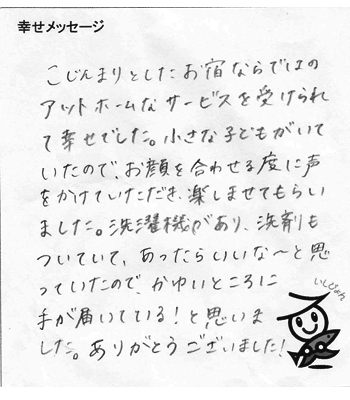 幸せメッセージ
こじんまりとしたお宿ならではの
アットホームなサービスを受けられ
て幸せでした。小さな子どもがいて
いたので、お顔を合わせる度に声
をかけていただき、楽しませてもらい
ました。洗濯機があり、洗剤も
ついていて、あったらいいな〜と思
っていたので、かゆいところに
手が届いている！と思いま
した。ありがとうございました！
いしぴょん